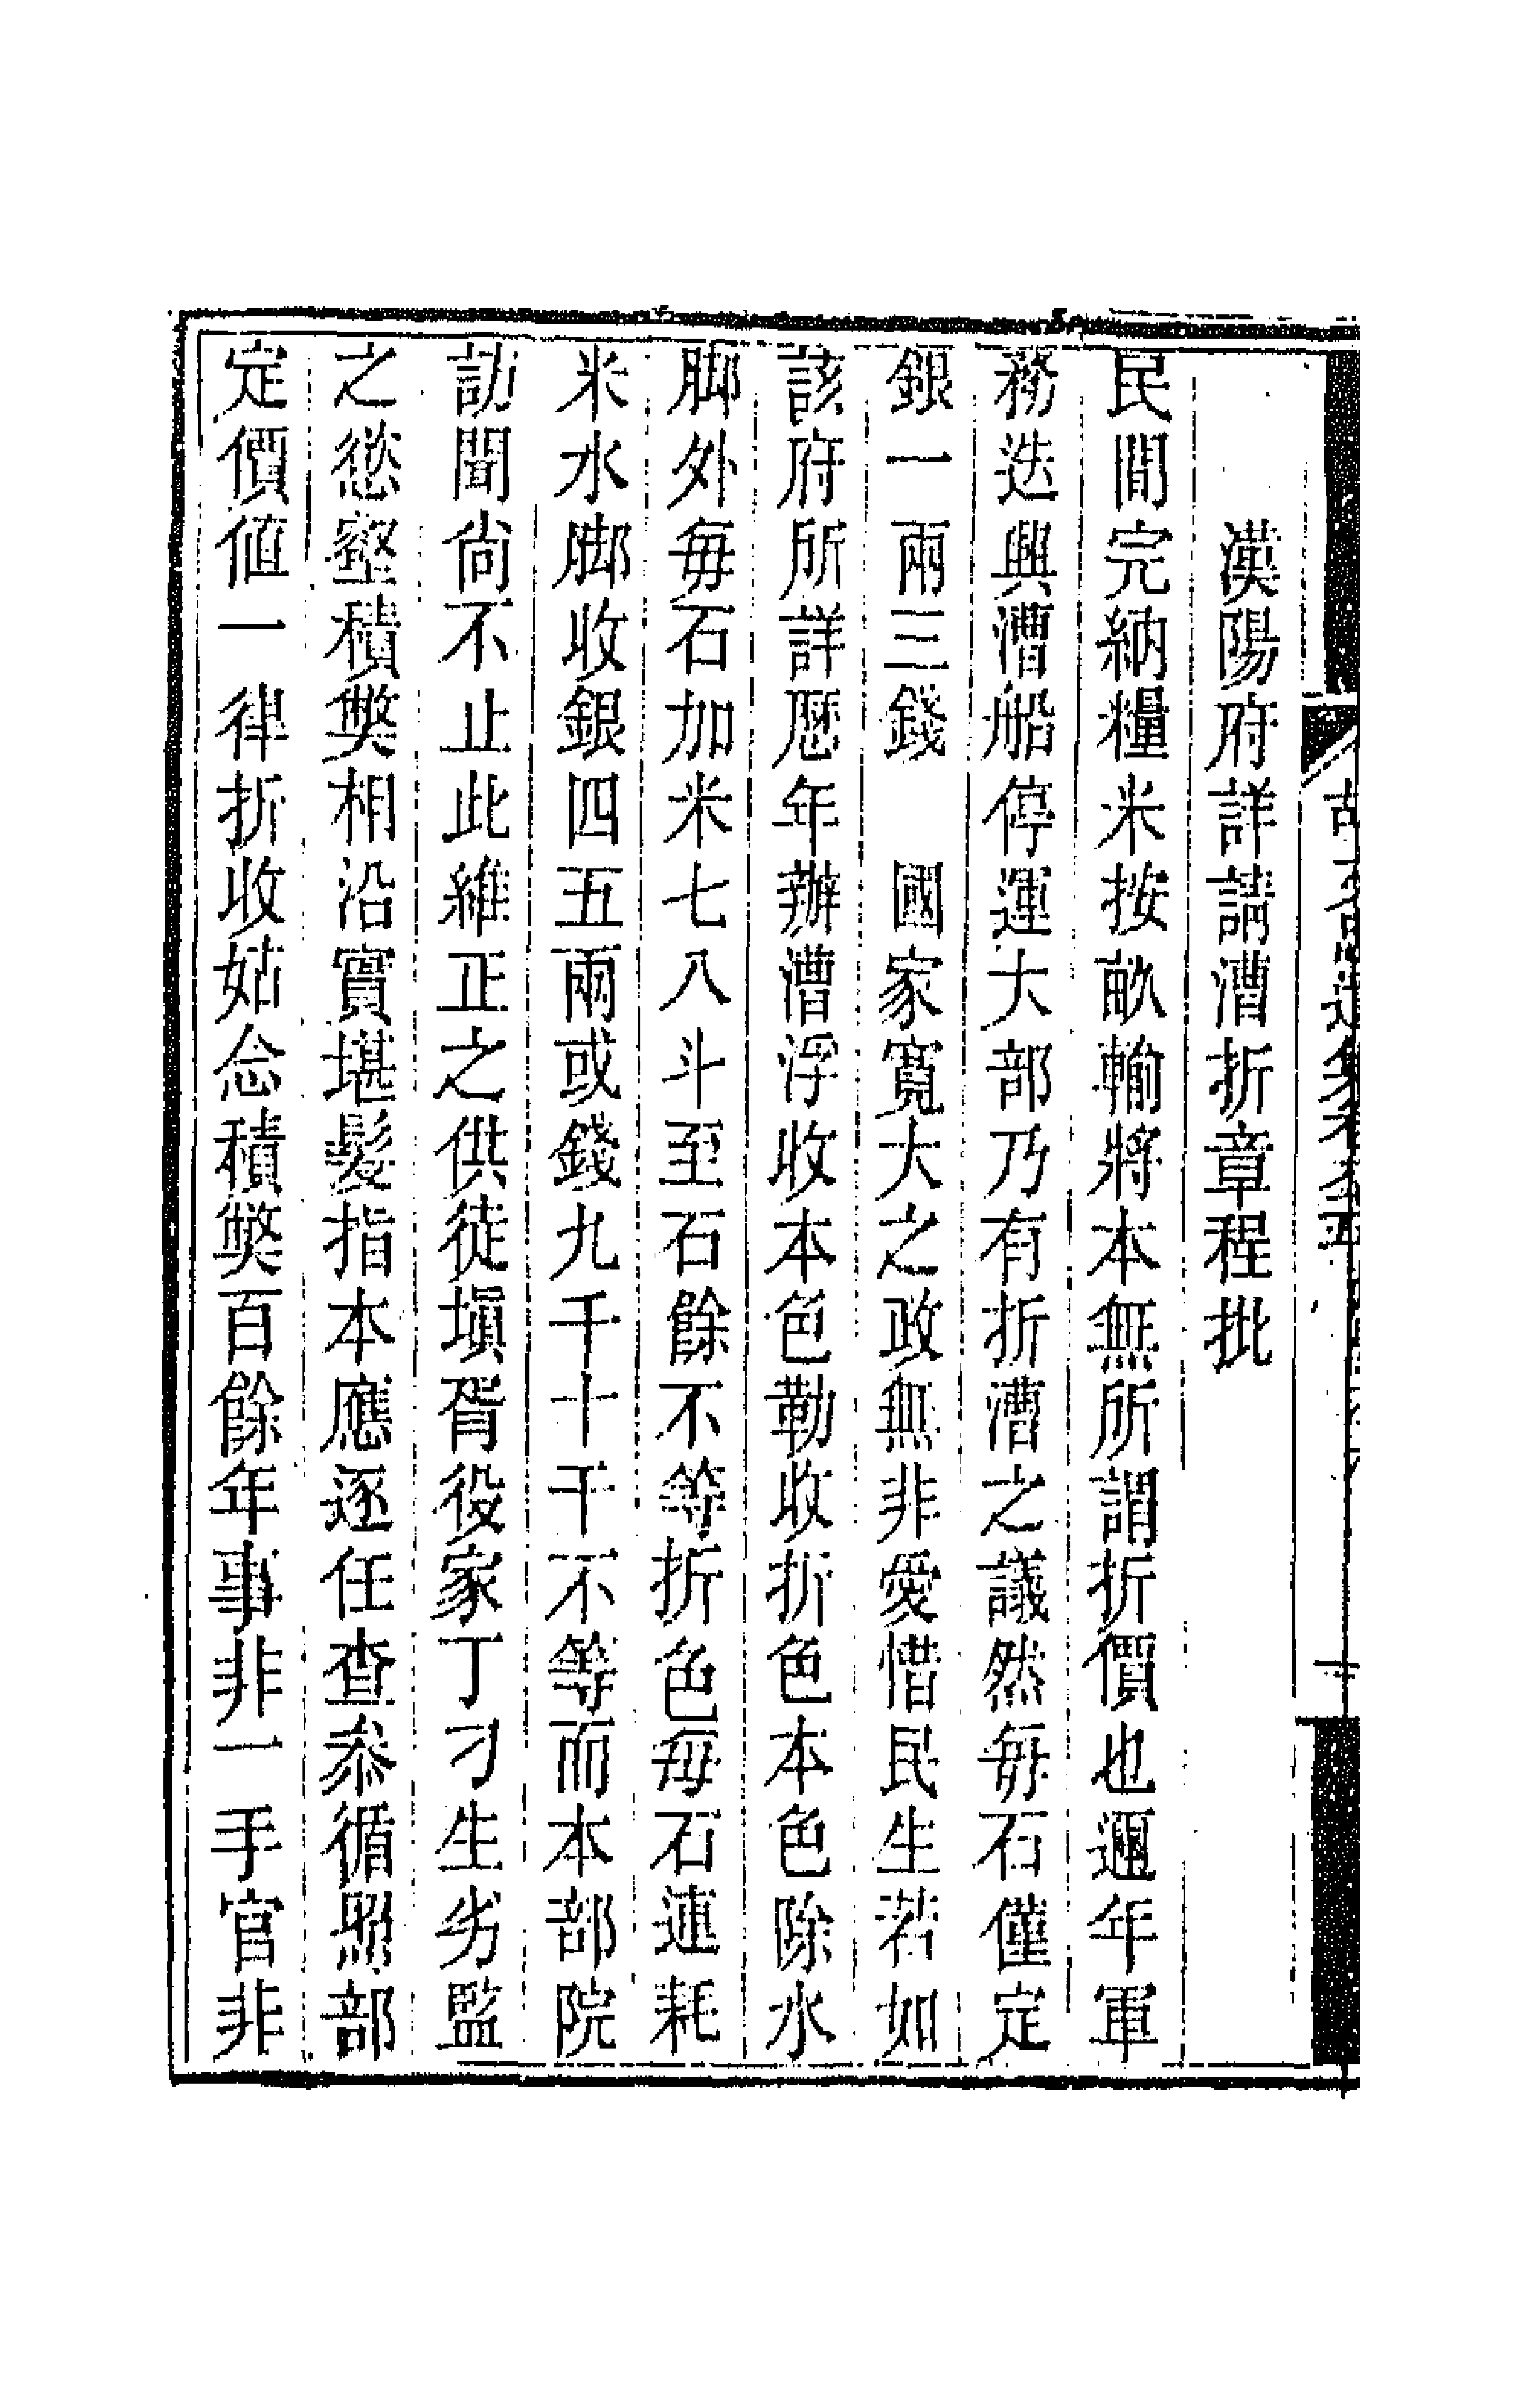 漢陽府詳請漕折章程批
民間完納糧米按畝輸將本無所謂折價也邇年軍
務迭興漕船停運大部乃有折漕之議然每石僅定
銀一兩三錢　國家寬大之政無非愛惜民生若如
該府所詳歷年辦漕浮收本色勒收折色本色除水
脚外每石加米七八斗至石餘不等折色每石連耗
米水脚收銀四五兩或錢九千十千不等而本部院
訪聞尚不止此維正之供徒塡胥役家丁刁生劣監
之慾壑積獘相沿實堪髮指本應逐任查叅循照部
定價値一律折收姑念積獘百餘年事非一手官非